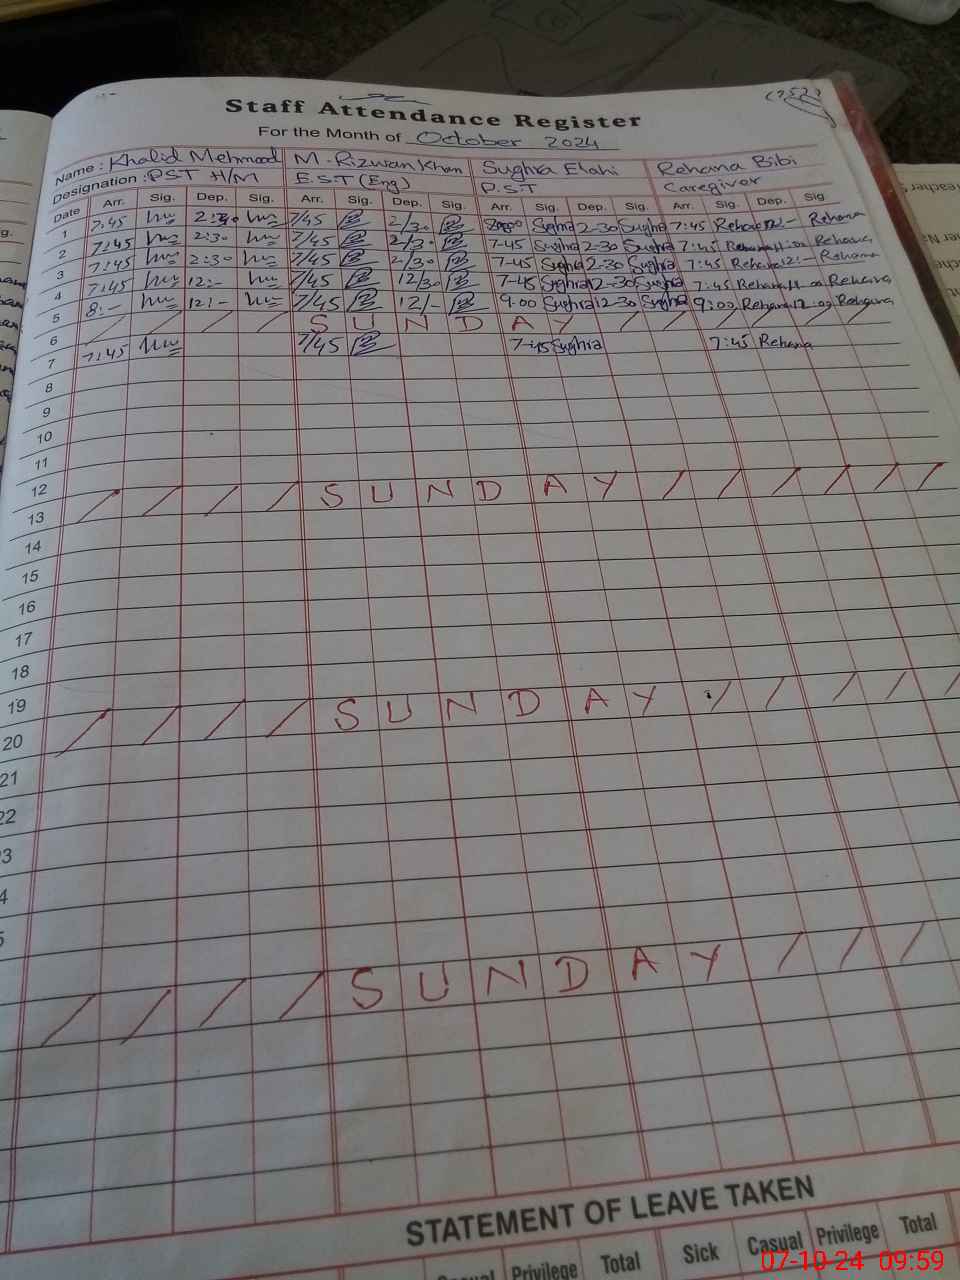 Staff Attendance Register
For the Month of October 2024
Name: Khalid Mehmood M. Rizwan Khan Sughra Elahi Rehana Bibi
Designation: PST H/M E.S.T (Eng) P.S.T Caregiver
Date Arr. Sig. Dep. Sig. Arr. Sig. Dep. Sig. Arr. Sig. Dep. Sig. Arr. Sig. Dep. Sig.
1 7:45 2:30 7/45 2/30 Sughra 2-30 Sughra 7:45 Rehana 12:- Rehana
2 7:45 2:30 7/45 2/30 7-45 Sughra 2-30 Sughra 7:45 Rehana Rehana
3 7:45 2:30 7/45 2/30 7-45 Sughra 2-30 Sughra 7:45 Rehana 12:- Rehana
4 7:45 12:- 7/45 12/30 7-45 Sughra 12-30 Sughra 7:45 Rehana Rehana
5 8:- 12:- 7/45 12/- 9.00 Sughra 12-30 Sughra 9:00 Rehana 12:00 Rehana
6 / / / / S U N D A Y / / / / / /
7 7:45 7/45 7-45 Sughra 7:45 Rehana
8
9
10
11
12
13 / / / / S U N D A Y / / / / / /
14
15
16
17
18
19
20 / / / / S U N D A Y / / / / /
21
22
23
4
5
/ / / / S U N D A Y / / /
STATEMENT OF LEAVE TAKEN
Casual Privilege Total Sick Casual Privilege Total
07-10-24 09:59